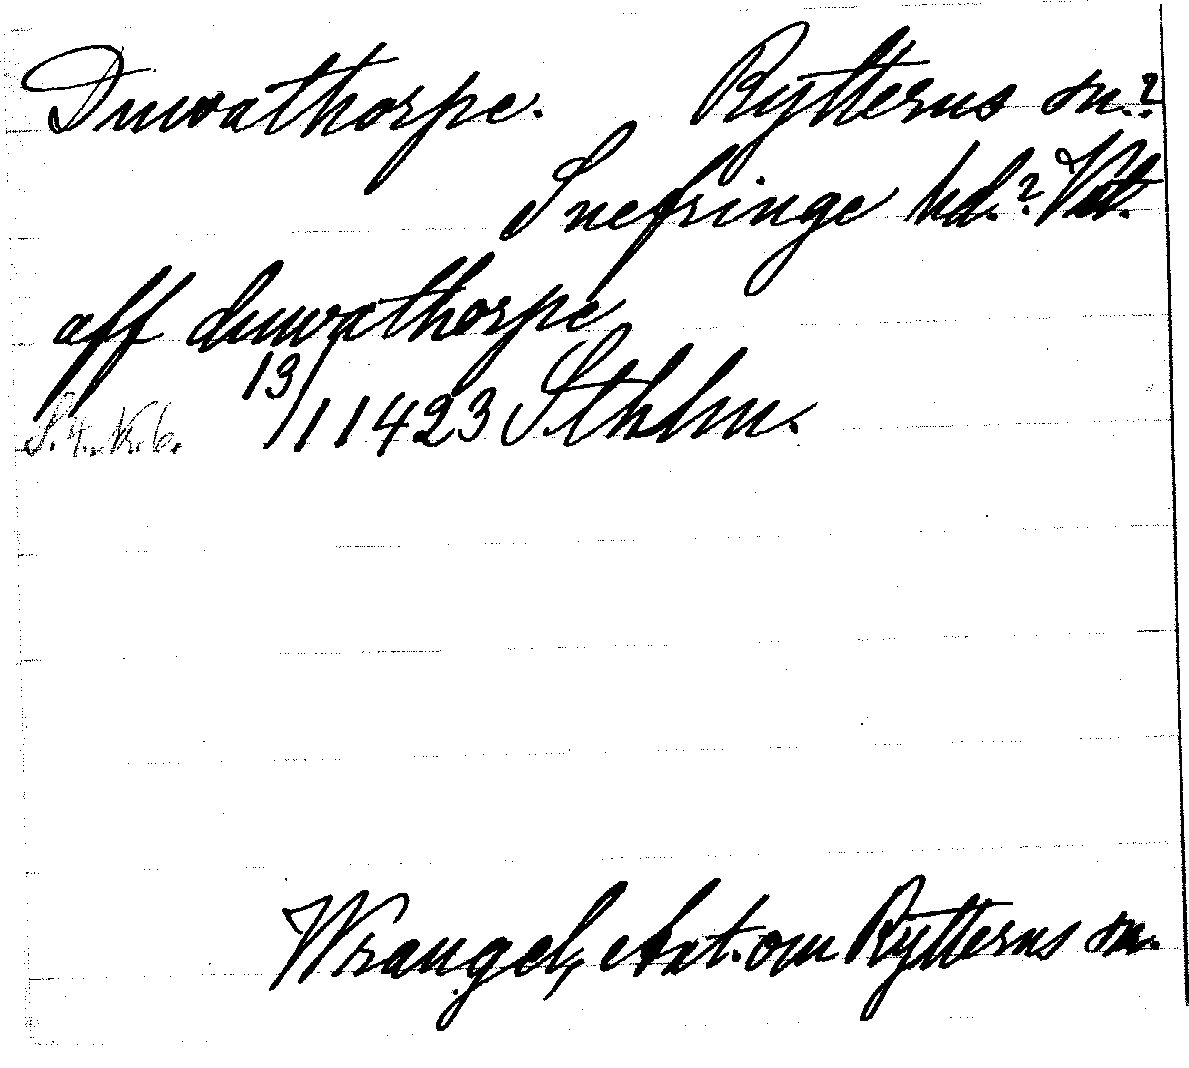 Duwathorpe. Rytterns sn.?
Snefringe hd.? Vstt.
aff duwathorpe
13/11 1423 Sthlm.
S. 4. N:r 6.
Wrangel, Ant. om Rytterns sn.